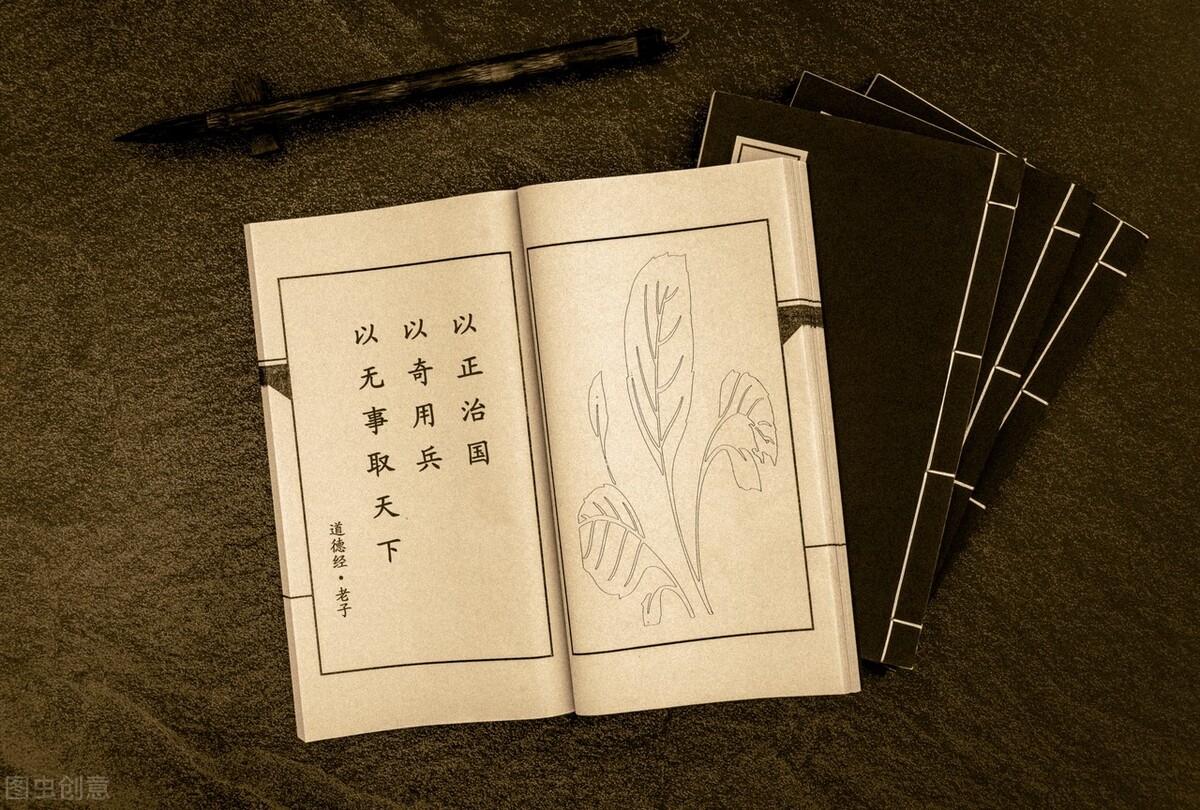 以正治国
以奇用兵
以无事取天下
道德经·老子
图虫创意